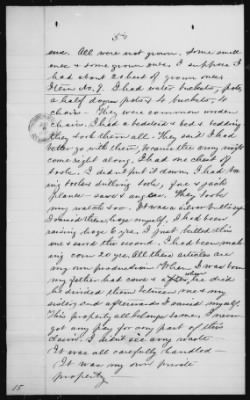 5
ones. All were not grown. Some small
ones & some grown ones. I suppose I
had about a hect of grown ones
Item No. 9. I had water buckets, pots,
a half dozen pots & to buckets, 10
chairs. They were common wooden
chairs. I had a bedstead & bed & bedding
they took them all. They said I had
better go with them, because the army might
come right along. I had one chest of
tools. I didn't put it down. I had
ing tools drilling tools, fore & jack
planes saws & any ax. They took
my watch too. It was a silver
I raised them hogs myself. I had been
raising hogs 6 yrs. I just killed this
me & saved the second. I had been mak
ing corn 20 yrs. All these articles are
my own production. When I was born
my father had cows & after when he died
he divided them between me & my
sisters and afterwards I raised myself.
This property all belongs to me. I never
got any pay for any part of this
claim. I didn't see any waste
It was all carefully handled—
It was my own private
property
15